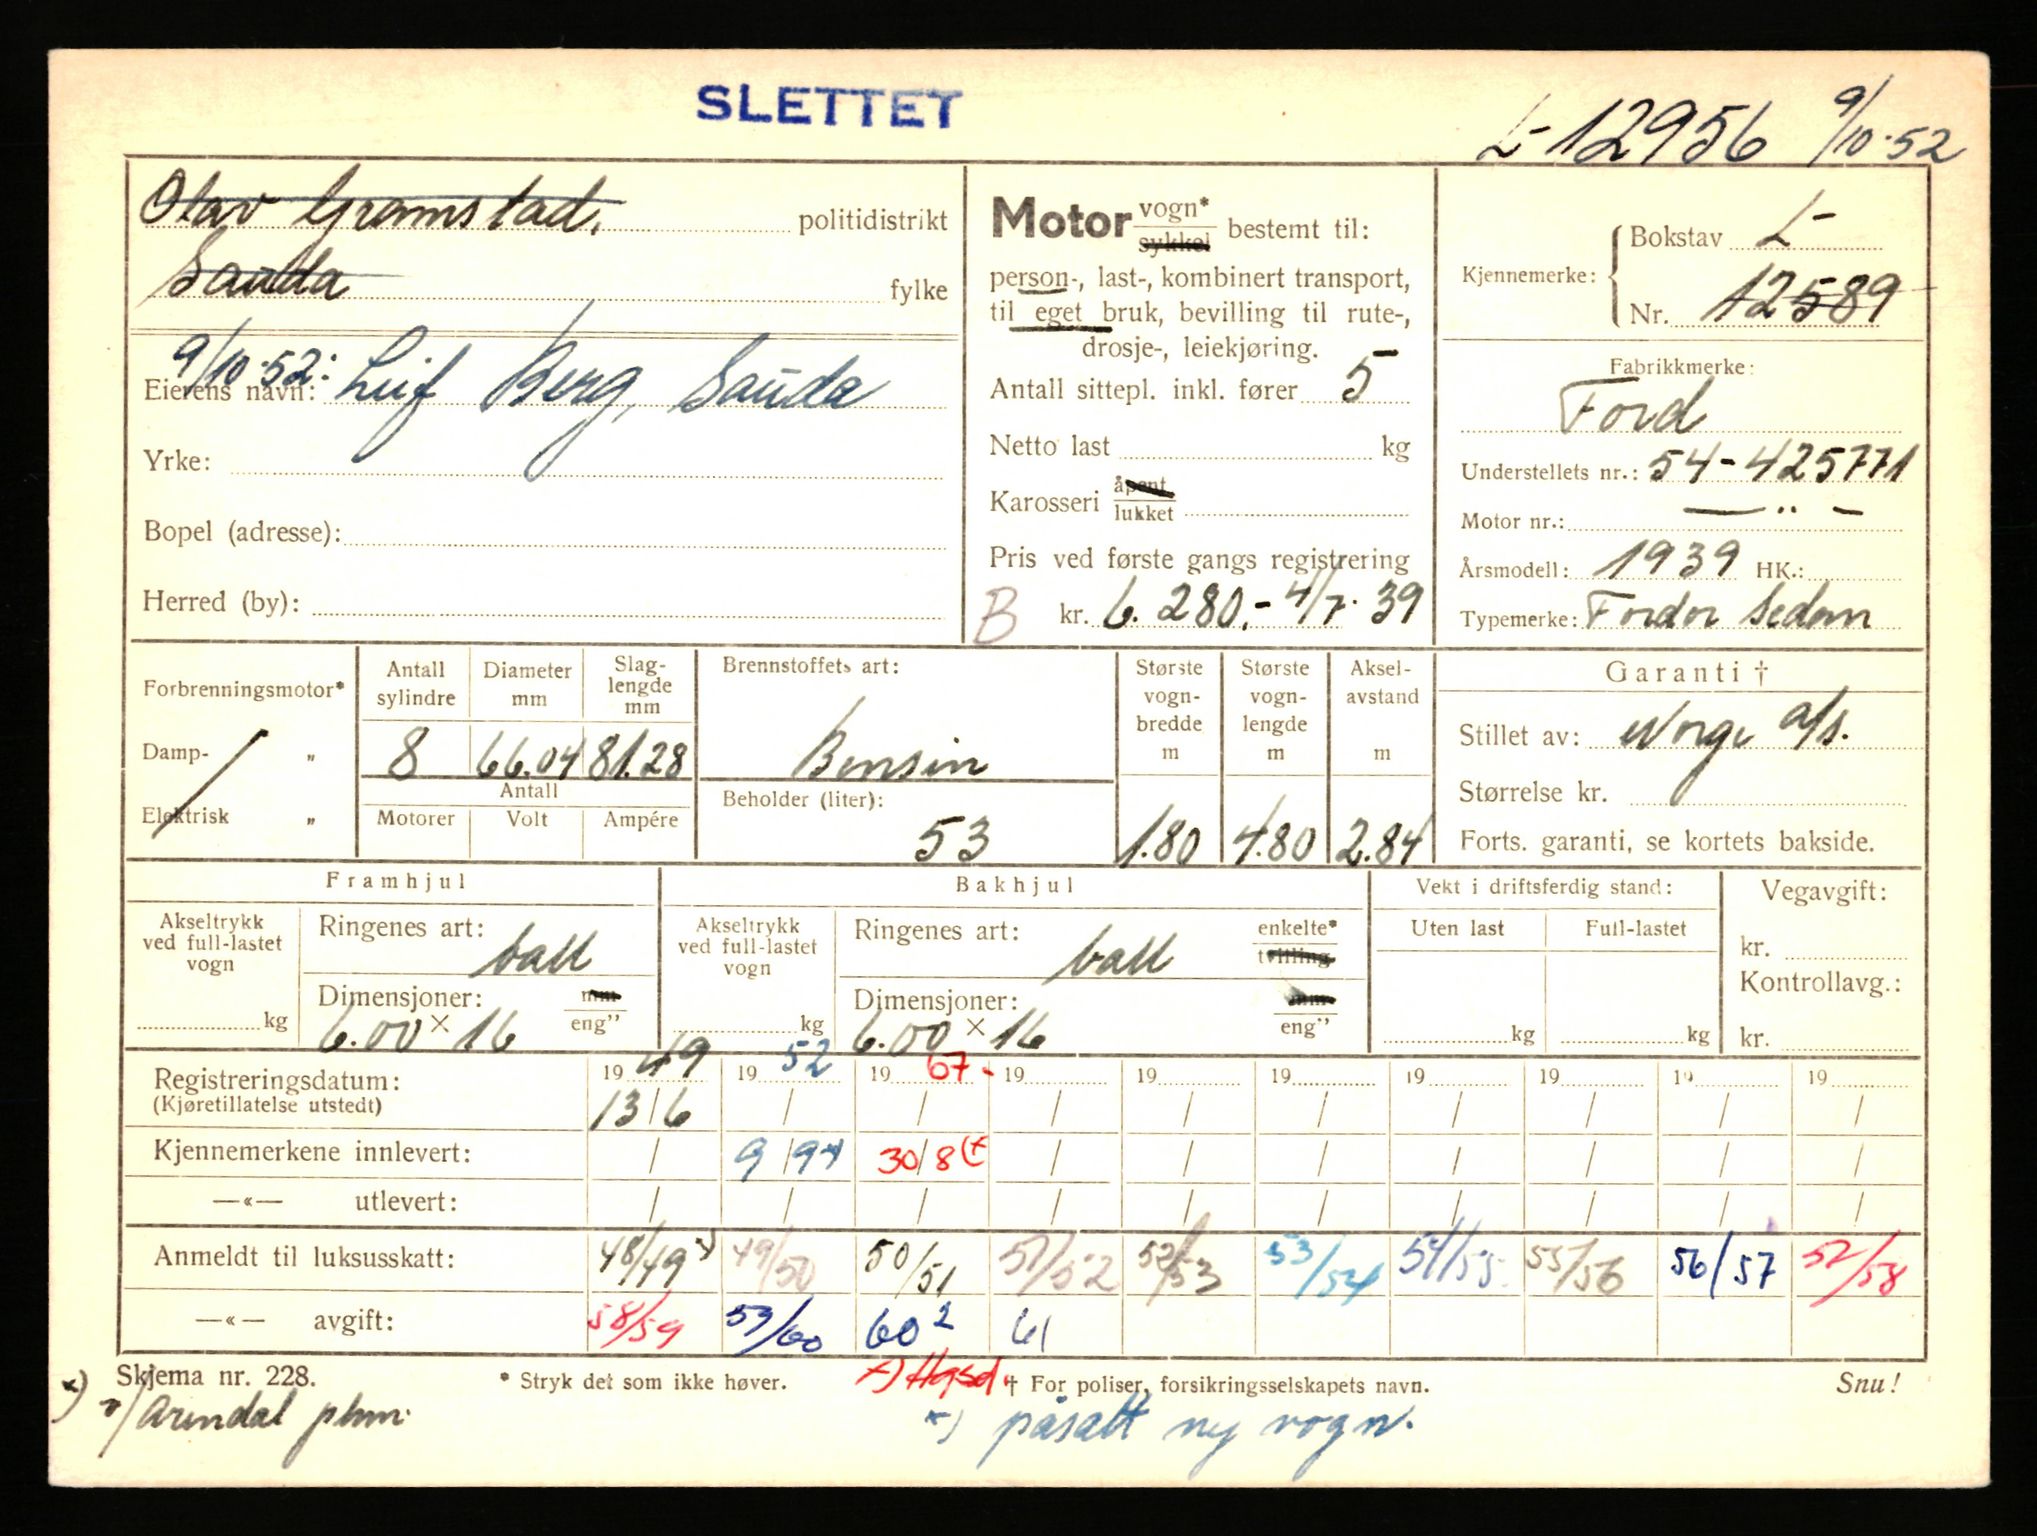 SLETTET
L-12956 9/10-52
Olav Gramstad, politidistrikt
Sauda fylke
9/10-52:
Eierens navn: Leif Berg, Sauda
Yrke:
Bopel (adresse):
Herred (by):
Motor vogn* sykkel bestemt til:
person-, last-, kombinert transport,
til eget bruk, bevilling til rute-,
drosje-, leiekjøring.
Antall sittepl. inkl. fører 5
Netto last kg
Karosseri åpent lukket
Pris ved første gangs registrering
B kr. 6.280,- 4/7-39
Kjennemerke: Bokstav L-
Nr. 12589
Fabrikkmerke:
Ford
Understellets nr.: 54-425771
Motor nr.: — „ —
Årsmodell: 1939 HK.:
Typemerke: Fordor Sedan
Forbrenningsmotor*
Damp- „
Elektrisk „
Antall sylindre Diameter mm Slag-lengde mm
8 66.04 81.28
Antall
Motorer Volt Ampére
Brennstoffets art:
Bensin
Beholder (liter):
53
Største vogn-bredde m Største vogn-lengde m Aksel-avstand m
1.80 4.80 2.84
Garanti †
Stillet av: Norge a/s.
Størrelse kr.
Forts. garanti, se kortets bakside.
Framhjul
Akseltrykk ved full-lastet vogn
kg
Ringenes art:
ball
Dimensjoner: mm eng"
6.00 × 16
Bakhjul
Akseltrykk ved full-lastet vogn
kg
Ringenes art: enkelte* tvilling
ball
Dimensjoner: mm eng"
6.00 × 16
Vekt i driftsferdig stand:
Uten last Full-lastet
kg kg
Vegavgift:
kr.
Kontrollavg.:
kr.
Registreringsdatum: 19 49 19 52 19 67- 19 19 19 19 19 19 19
(Kjøretillatelse utstedt) 13/6 / / / / / / / / /
Kjennemerkene innlevert: / 9/9 x) 30/8 (x / / / / / / /
—«— utlevert: / / / / / / / / / /
Anmeldt til luksusskatt: 48/49 x) 49/50 50/51 51/52 52/53 53/54 54/55 55/56 56/57 57/58
—«— avgift: 58/59 59/60 60² 61
Skjema nr. 228. * Stryk det som ikke høver. x) Hgsd. † For poliser, forsikringsselskapets navn. Snu!
x) Arendal pkm.
x) påsatt ny vogn.